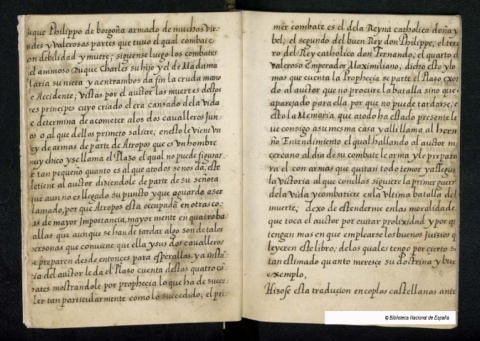 Duque Philippo de borgoña armado de muchas vir
tudes y valerosas partes que tuuo el qual combate
con debilidad y mutre; siguense luego los combates
del animoso Duque Charles su hijo y el de Madama
Maria su nieta y a entrambos da fin la cruda mano
de Accidente, vistas por el auctor las muertes destos
tres principes cuyo criado el era cansado dela vida
se determina de acometer alos dos caualleros Jun
tos o al que dellos primero saliere, en esto le viene vn
Rey de armas de parte de Atropos que es vn hombre
muy chico y se llama el Plaso el qual no puede figurar
tan pequeño quanto es al que atodos se nos da, este
detiene al auctor diziendole de parte de su señora
que aun no es llegado su punto y que aguarde a ser
llamado, por que Atropos esta occupada en otras co
sas de mayor importancia, mayor mente en quatro ba
tallas que aunque se han de tardar algo son de tales
personas que conuiene que ella y sus dos caualleros
se preparen desde entonces para esperallas, y a insta
cia del auctor le da el Plaso cuenta destos quatro co
bates mostrandole por prophecia lo que ha de suce
der tan particularmente como lo succedido, el pri
mer combate es el dela Reyna catholica doña y
bel, el segundo del buen Rey don Philippe, el terce
ro del Rey catholico don Fernando, el quarto d
valeroso Emperador Maximiliano, dicho esto y lo
mas que cuenta la Prophecia se parte el Plaso exor
do al auctor que no procure la batalla sino que
aparejado para ella por que no puede tardarse, e
esto la Memoria, que atodo ha estado presente le
ue consigo asu mesma casa y alli llama al herm
no Entendimiento el qual hallando al auctor m
cercano al dia de su combate le arma y le prepara
ra el con armas que quitan todo temor y allegan
la victoria al que con ellas siguiere la primer querr
dela vida y combatiere en la vltima batalla del
muerte. Dexo de estenderme en las moralidades
que toca el auctor por euitar prolexidad y por q
tengan mas en que emplearse los buenos Juizios q
leyeren este libro, delos quales tengo por cierto s
tan estimado quanto meresce su doctrina y bue
exemplo,
Hizose esta traducion en coplas castellanas ante
© Biblioteca Nacional de España